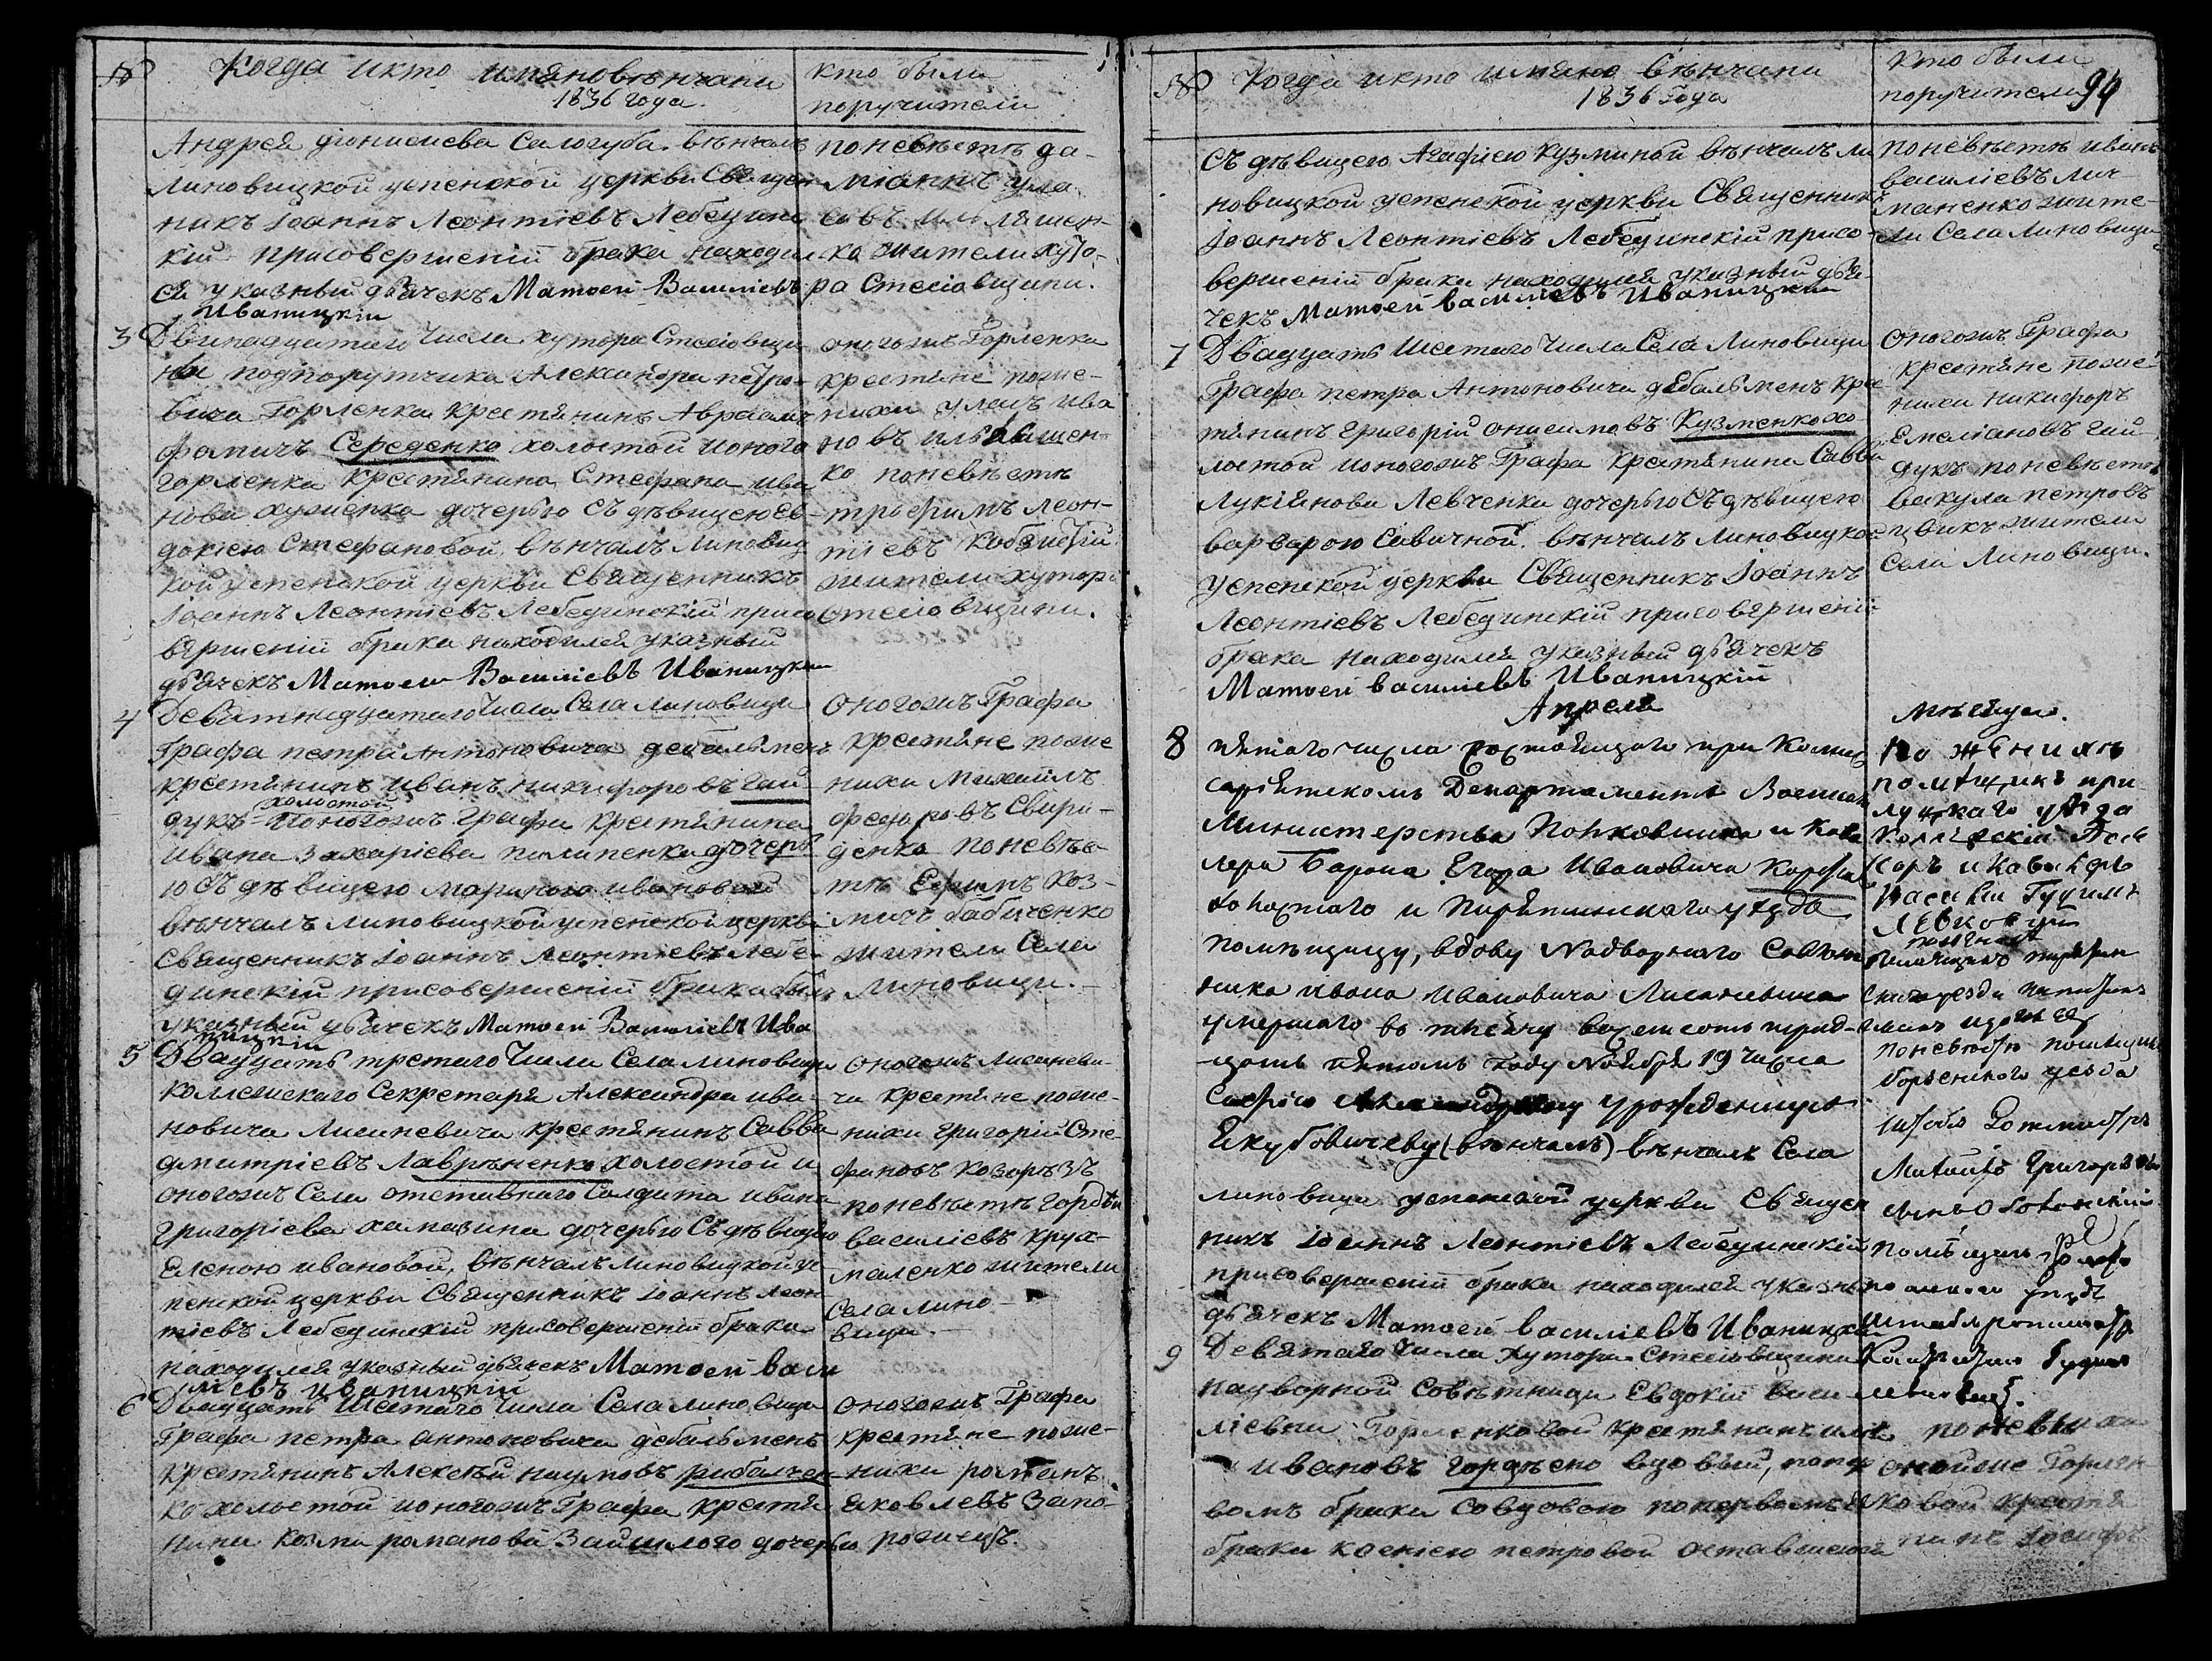 №
Когда икто имяновѣнчани
1836 года.
кто были
поручители
Андрея діонисиева Салогуба. вѣнчалъ
линовицкой успенской церкви Священ
никъ Іоаннъ Леонтіевъ Лебединс
кій присовершеній брака находил
ся указный дьячекъ Матѳей Василіевъ
Иваницкій
поневѣстѣ да-
ляшен-
ко жители хуто-
ра Стесіовщини.
3 Двинадцатаго Числа хутора Стесіовщи
ни подпорутчика Александра петро-
вича Горленка крестянинъ Авраамъ
фомичъ Середенко холостой ионого
горленка крестянина Стефана ива
нова дочерью Съ дѣвицею Ев-
докіею Стефановой, вѣнчалъ линовиц
кой успенской церкви Священникъ
Іоаннъ Леонтіевъ Лебединскій присо
вершеній брака находился указный
дьячекъ Матѳей Василіевъ Иваницкій
оногожъ Горленка
крестяне поже-
ниху улашъ ива
новъ илляшен-
ко поневѣстѣ
трофимъ Леон-
тіевъ
жители хутора
Стесіовщини.
4 Девятнадцатаго Числа Села линовици
Графа петра Антоновича дебальменъ
крестянинъ иванъ никифоровъ гай
дукъ холостой ионогожъ графа крестянина
ивана захаріева пилипенка дочерь
ю Съ дѣвицею мариною ивановой
вѣнчалъ линовицкой успенской церкви
Священникъ Іоаннъ Леонтіевъ Лебе-
динскій присовершеній брака былъ
указный дьячекъ Матѳей Василіевъ Ива
ницкій
Оногожъ Графа
крестяне поже
ниху Михаилъ
федоровъ Свири-
денко поневѣс-
тѣ Ефимъ Коз-
мичъ бабиченко
жители Села
линовици.
5 Двадцать третаго Числа Села линовици
Коллежскаго Секретаря Александра ива-
новича Лисаневича крестянинъ Савва
дмитріевъ Лавриненко холостой и
оногожъ Села отставнаго Солдата ивана
Григоріева хамазина дочерью Съ дѣвицею
Еленою ивановой, вѣнчалъ линовицкой ус
пенской церкви Священникъ Іоаннъ Леон
тіевъ Лебединскій присовершеній брака
находился указный дьячекъ Матѳей Васи
ліевъ Иваницкій
оногожъ Лисаневи-
ча крестяне поже-
ниху григорій Сте-
фановъ козарѣзъ
поневѣстѣ гордѣй
василіевъ крух-
маленко жители
Села лино-
вици.
6 Двадцать шестаго Числа Села линовици
Графа петра антоновича дебальменъ
крестянинъ Алексѣй наумовъ рибалчен
ко холостой ионогожъ Графа крестя
нина козми романова Зайшлого дочерью
оногожъ Графа
крестяне поже-
ниху романъ
яковлевъ Запо-
рожецъ.
№
Когда икто имяно вѣнчани
1836 Года
кто были
поручители 94
Съ дѣвицею Агафіею кузминой вѣнчалъ ли
новицкой успенской церкви Священникъ
Іоаннъ Леонтіевъ Лебединскій присо-
вершеній брака находился указный дья-
чекъ Матѳей василіевъ Иваницкій
поневѣстѣ иванъ
василіевъ лич-
маненко жите-
ли Села линовици
7 Двадцать шестаго Числа Села линовици
Графа петра Антоновича дебальменъ кре
тянинъ григорій онисимовъ Кузменко хо
лостой ионогожъ Графа крестянина Савви
Лукіянова Левченка дочерью Съ дѣвицею
варварою Савичной. вѣнчалъ линовицкой
успенской церкви Священникъ Іоаннъ
Леонтіевъ Лебединскій присовершеній
брака находился указный дьячекъ
Матѳей василіевъ Иваницкій
оногожъ Графа
крестяне поже-
ниху никифоръ
Емеліановъ гай
дукъ поневѣстѣ
вакула петровъ
цвикъ жители
Села линовици.
Апреля
Мѣсяца.
8 пятаго числа состоящаго при Комис
саріатскомъ Департаментѣ Военнаго
Министерства Полковника и Кава
лера Барона Егора Ивановича Корфа
и Пирятинскаго уѣзда
помѣщицу, вдову Надворнаго Совѣт
ника Ивана Ивановича Лисаневича
умершаго въ тысячу восемсотъ трид-
цать пятомъ году Ноября 19 числа
Софію урожденную
Якубовичеву (вѣнчалъ) вѣнчалъ Села
линовици успенской церкви Священ
никъ Іоаннъ Леонтіевъ Лебединскій
присовершеній брака находился указный
дьячекъ Матѳей василіевъ Иваницкій
По женихѣ
помѣщикъ при-
луцкаго уѣзда
Коллежскій Асес
соръ и Кавалеръ
Василій Гудимъ
Левковичъ
поневѣстѣ помѣщикъ
борзенскаго уезда
Штабъ Ротмистръ
Григорьевъ
помѣщикъ
Гудимъ
Левковичъ.
9 Девятаго Числа хутора Стесіовщини
надворной Совѣтници Евдокіи Васи
ліевни Горленковой крестянинъ илія
ивановъ гордѣенко вдовый, попер
вомъ браки Совдовою попервомъ
браки ксенією петровой оставшеюся
поженихѣ
онойже Горлен-
ковой крестя
нинъ Іосифъ